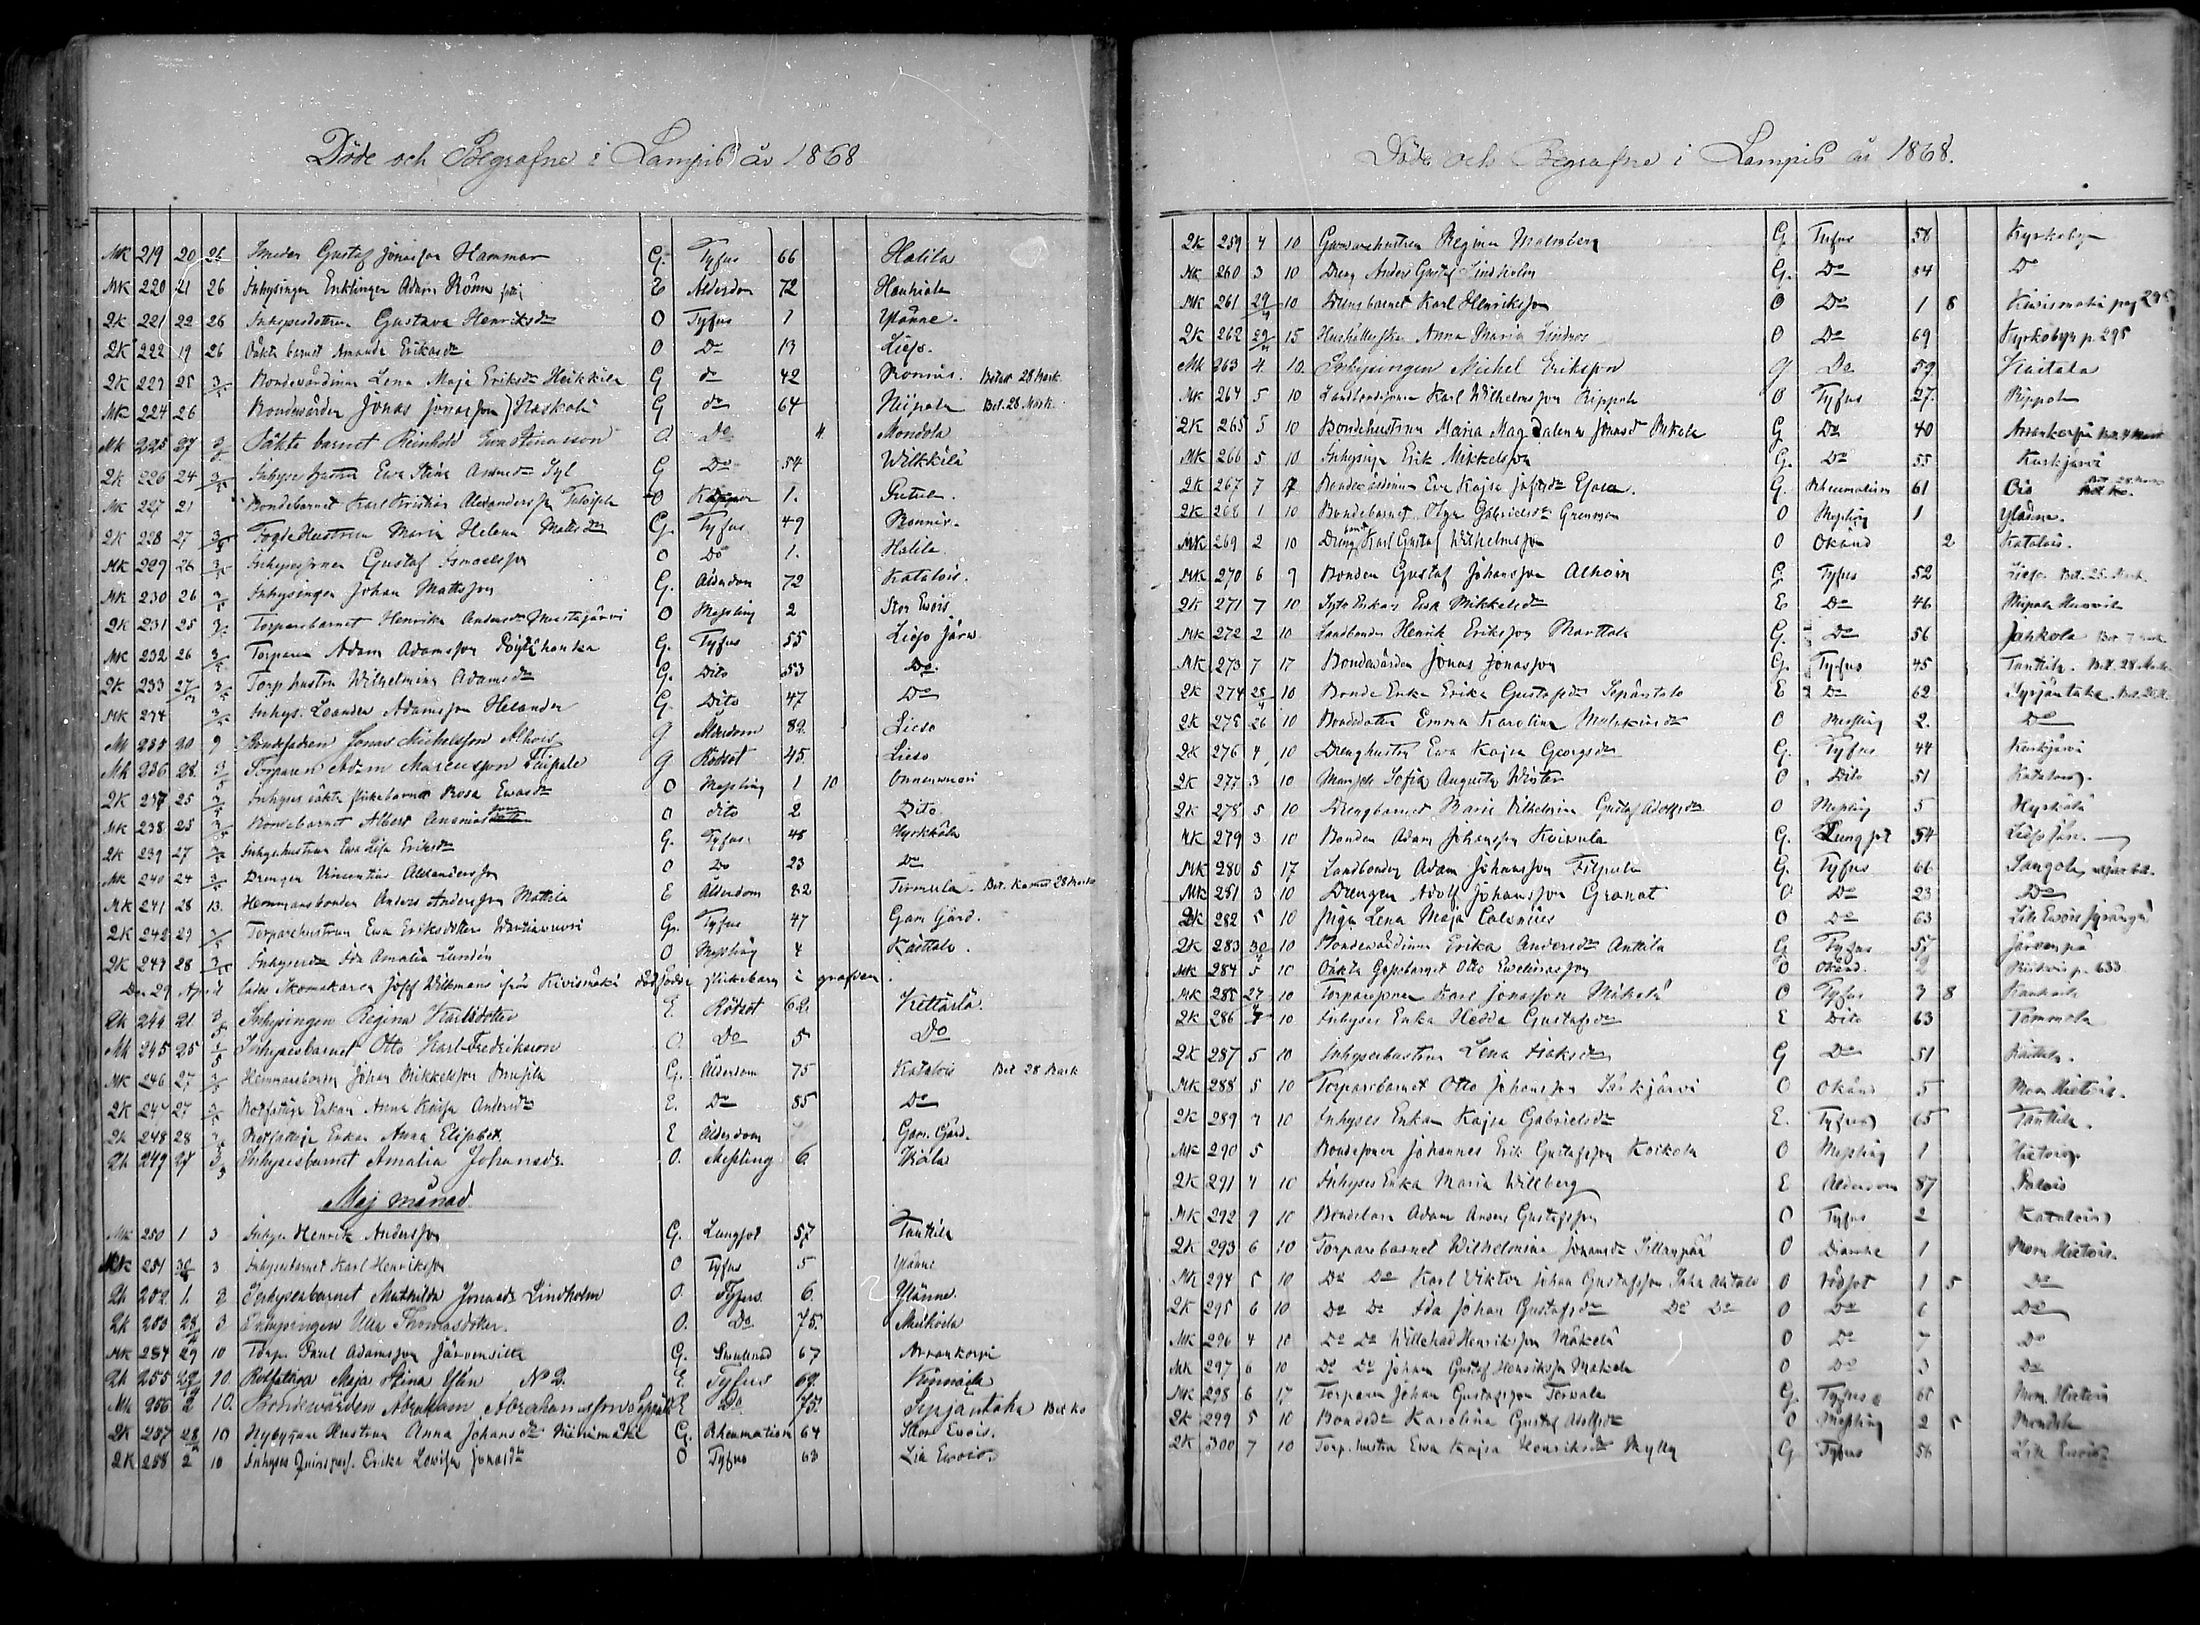 Döde och Begrafne i Lampis år 1868
MK 219 20 26 Smeden Gustaf Jonasson Hammar G. Tyfus 66 Halila
MK 220 21 26 Inhysingen Enklingen Adam E Ålderdom 72 Hauhiala
QK 221 22 26 Gustava Henriksdr O Tyfus 1 Ylänne
QK 222 19 26 Oäkta barnet Amanda Eriksdr O Do 13 Lieso.
QK 223 25 3/5 Bondevärdinnan Lena Maja Eriksdr Heikkilä G do 42 Ronnis. Betalt 28 Mark
MK 224 26 Bondevärden Jonas Jonasson Haskola G do 64 Niipala Bet. 28 Mark.
MK 225 27 3/5 Oäkta barnet Reinhold Evastinasson O. Do 4 Mondola
QK 226 24 3/5 Inhyses hustru Eva Stina G Do 54 Wilkkilä
MK 227 21 Bondebarnet Karl Kristian Alexandersson O 1.
QK 228 27 3/5 Fogdehustrun Maria Helena Mattsdr G. Tyfus 49 Ronnis.
MK 229 26 3/5 Inhysessonen Gustaf Ismaelsson O Do 1. Halila
MK 230 26 3/5 Inhysingen Johan Mattsson G. Ålderdom 72 Katalois.
QK 231 25 3/5 Torparebarnet Henrika Andersdr Mustajärvi O Messling 2 Stor Evois
MK 232 26 3/5 Torparen Adam Adamsson G. Tyfus 55 Lieso järv.
QK 233 27/4 3/5 Torp hustru Wilhelmina Adamsdr G. Dito 53 Do.
MK 234 3/5 Inhys. Leander Adamsson Helander G. Dito 47 Do
MK 235 30 9 Bondefadren Jonas Michelsson Alhois g Ålderdom 82 Lieso
MK 236 28. 3/5 Torparen Adam Marcusson Taipale g Rödsot 45. Lieso
QK 237 25 3/5 Inhyses oäkta flickebarnet Rosa Evasdr O Messling 1 10
MK 238 25 3/5 Bondebarnet Albert O dito 2 Dito
QK 239 27 3/5 Inhyseshustrun Eva Lisa Eriksdr G. Tyfus 48 Hyrkkälä
MK 240 24 3/5 Drengen Vincentius Alexandersson O Do 23 Do
MK 241 28 13. Hemmansbonden Anders Andersson Mattila E Ålderdom 82 Tirmula Bet. 28 Mark
QK 242 29 3/5 Torparehustrun Eva Eriksdotter G. Tyfus 47 Gam Gård.
QK 243 28 3/5 Ida Amalia Lundén O Messling 4 Kättelä.
Den 29 April lades Skomakaren Josef Wilkmans ifrån Kivismäki dödfödda flickebarn i grafven.
QK 244 21 3/5 Inhysingen Regina Karlsdotter E. Rötsot 62. Kettärlä.
MK 245 25 3/5 Inhysesbarnet Otto Karl-Fredriksson O. Do 5 Do
MK 246 27 3/5 Hemmansbonden Johan Mikkelsson G. Ålderdom 75 Katalois Bet 28 Mark
QK 247 27 3/5 Rotfattige Enkan Anna Kaisa Andersdr E. Do 85 Do
QK 248 28 Rotfattige Enkan Anna Elisabet E Ålderdom Gam. Gård.
QK 249 27 3/5 Inhysesbarnet Amalia Johansdr. O. Messling 6
Maj månad.
MK 250 1 3 Inhys. Henrik Andersson G. Lungsot 57 Tanttila
MK 251 30/4 3 Inhysesbarnet Karl Henriksson O Tyfus 5 Ylänne
QK 252 1. 3 Inhysesbarnet Mathilda Jonasdr Lindholm O. Tyfus 6 Ylänne.
QK 253 28/4 3 Inhysingen Ulla Thomasdotter. O. Do. 75.
MK 254 29 10 Torp. Paul Adamsson G. 67 Arrankorpi
QK 255 29/4 10. Rotfattiga Maja Stina Ylén No 2. E. Tyfus 62.
MK 256 2 10. Bondevärden Abraham Abrahamsson Seppälä E do 75. Syrjäntaka Bet ko
QK 257 28/4 10 Nybyggare Hustrun Anna Johansdr Niinimäki G. Rheumatism 64 Stor Evois.
QK 258 2 10 Inhyses Erika Lovisa Jonasdr O Tyfus 63 Lill Evois.
Döde och Begrafne i Lampis år 1868.
QK 259 4 10 Regina Malmberg G Tyfus 58 Kyrkoby
MK 260 3 10 Dreng Anders Gustaf Lindholm G. Do 54 Do
MK 261 29/4 10 Drengbarnet Karl Henriksson O Do 1 8 Kivismäki pag 295
QK 262 29/4 15 Hushållerskan Anna Maria Lindroos O Do 69 Kyrkoby p. 295
MK 263 4. 10. Inhysingen Michel Eriksson g Do 59. Kaitala
MK 264 5 10 Landbondsonen Karl Wilhelmsson Pippola O Tyfus 27. Pippola
QK 265 5 10 Bondehustrun Maria Magdalena Jonasdr G Do 40 Arrankorpi
MK 266 5 10 Inhysing Erik Mikkelsson G. Do 55 Kurkjärvi
QK 267 7 17 Bondevärdinnan Eva Kajsa G. Rheumatism 61
QK 268 1 10 Bondebarnet Olga Gabrielsdr O Messling 1 Ylänne.
MK 269 2 10 Dreng Karl Gustaf Wilhelmsson O Okänd 2 Katalois.
MK 270 6 9 Bonden Gustaf Johansson Alhoin G Tyfus 52 Lieso Bet. 25 Mark
QK 271 7 10 Eva Mikkelsdr E Do 46
MK 272 2 10 Landbonden Henrik Eriksson Marttala G. Do 56 Jahkola
MK 273 7 17 Bondevärden Jonas Jonasson G. Tyfus 45 Tanttila. Bet. 28 Mark
QK 274 28/4 10 Bonde Enka Erika Gustafsdr E Do 62 Syrjäntaka
QK 275 26 10 Bondedotter Emma Karolina O Messling 2. Do
QK 276 4 10 Drenghustru Eva Kajsa Georgsdr G. Tyfus 44 Kurkjärvi
QK 277 3 10 Mamsell Sofia Augusta Winter O. Dito 51 Katalois.
QK 278 5 10 Drengbarnet Maria Vilhelmina Gustaf Adolfsdr O Messling 5 Hyrkälä
MK 279 3 10 Bonden Adam Johansson Koivula G. Lungsot 54 Lieso
MK 280 5 17 Landbonden Adam Johansson Filpula G. Tyfus 66
MK 281 3 10 Drengen Adolf Johansson Granat O Do 23 Do
QK 282 5 10 Piga Lena Maja Calenius O Do 63
QK 283 30/4 10 Bondevärdinnan Erika Andersdr Anttila G Tyfus 57 Järvenpä
MK 284 5 10 Oäkta Otto Evelinasson O Okänd. 2 p. 633
MK 285 27/4 10 Torparesonen Karl Jonasson Mäkelä O Tyfus 3 8
QK 286 7 10 Inhyses Enka Hedda Gustafsdr E Dito 63 Tommola
QK 287 5 10 Inhyseshustrun Lena Isaksdr G Do 51
MK 288 5 10 Torparebarnet Otto Johansson Särkjärvi O Okänd 5 Mom. Hietois.
QK 289 7 10 Inhyses Enkan Kajsa Gabrielsdr E. Tyfus 65 Tanttila.
MK 290 5 Bondesonen Johannes Erik Gustafsson Koikola O Messling 1 Hietois.
QK 291 4 10 Inhyses Enka Maria Willberg E Ålderdom 87
MK 292 9 10 Adam Anders Gustafsson O Tyfus 2 Katalois
QK 293 6 10 Torparebarnet Wilhelmina Johansdr O Diarrhe 1 Mom. Hietois.
MK 294 5 10 Do Do Karl Viktor Johan Gustafsson O rödsot 1 5 Do
QK 295 6 10 Do Do Ida Johan Gustafsdr Do Do O Do 6 Do
MK 296 4 10 Do Do Willehad Henriksson Mäkelä O Do 7 Do
MK 297 6 10 Do Do Johan Gustaf Henriksson Mäkelä O Do 3 Do
MK 298 6 17 Torparen Johan Gustafsson Torvala G. Tyfus 65 Mom. Hietois
QK 299 5 10 Bondedr Karolina Gustaf Adolfsdr O Messling 2 5 Mondola
QK 300 7 10 Torp. hustru Eva Kajsa Henriksdr Mylly G Tyfus 56 Lill Evois